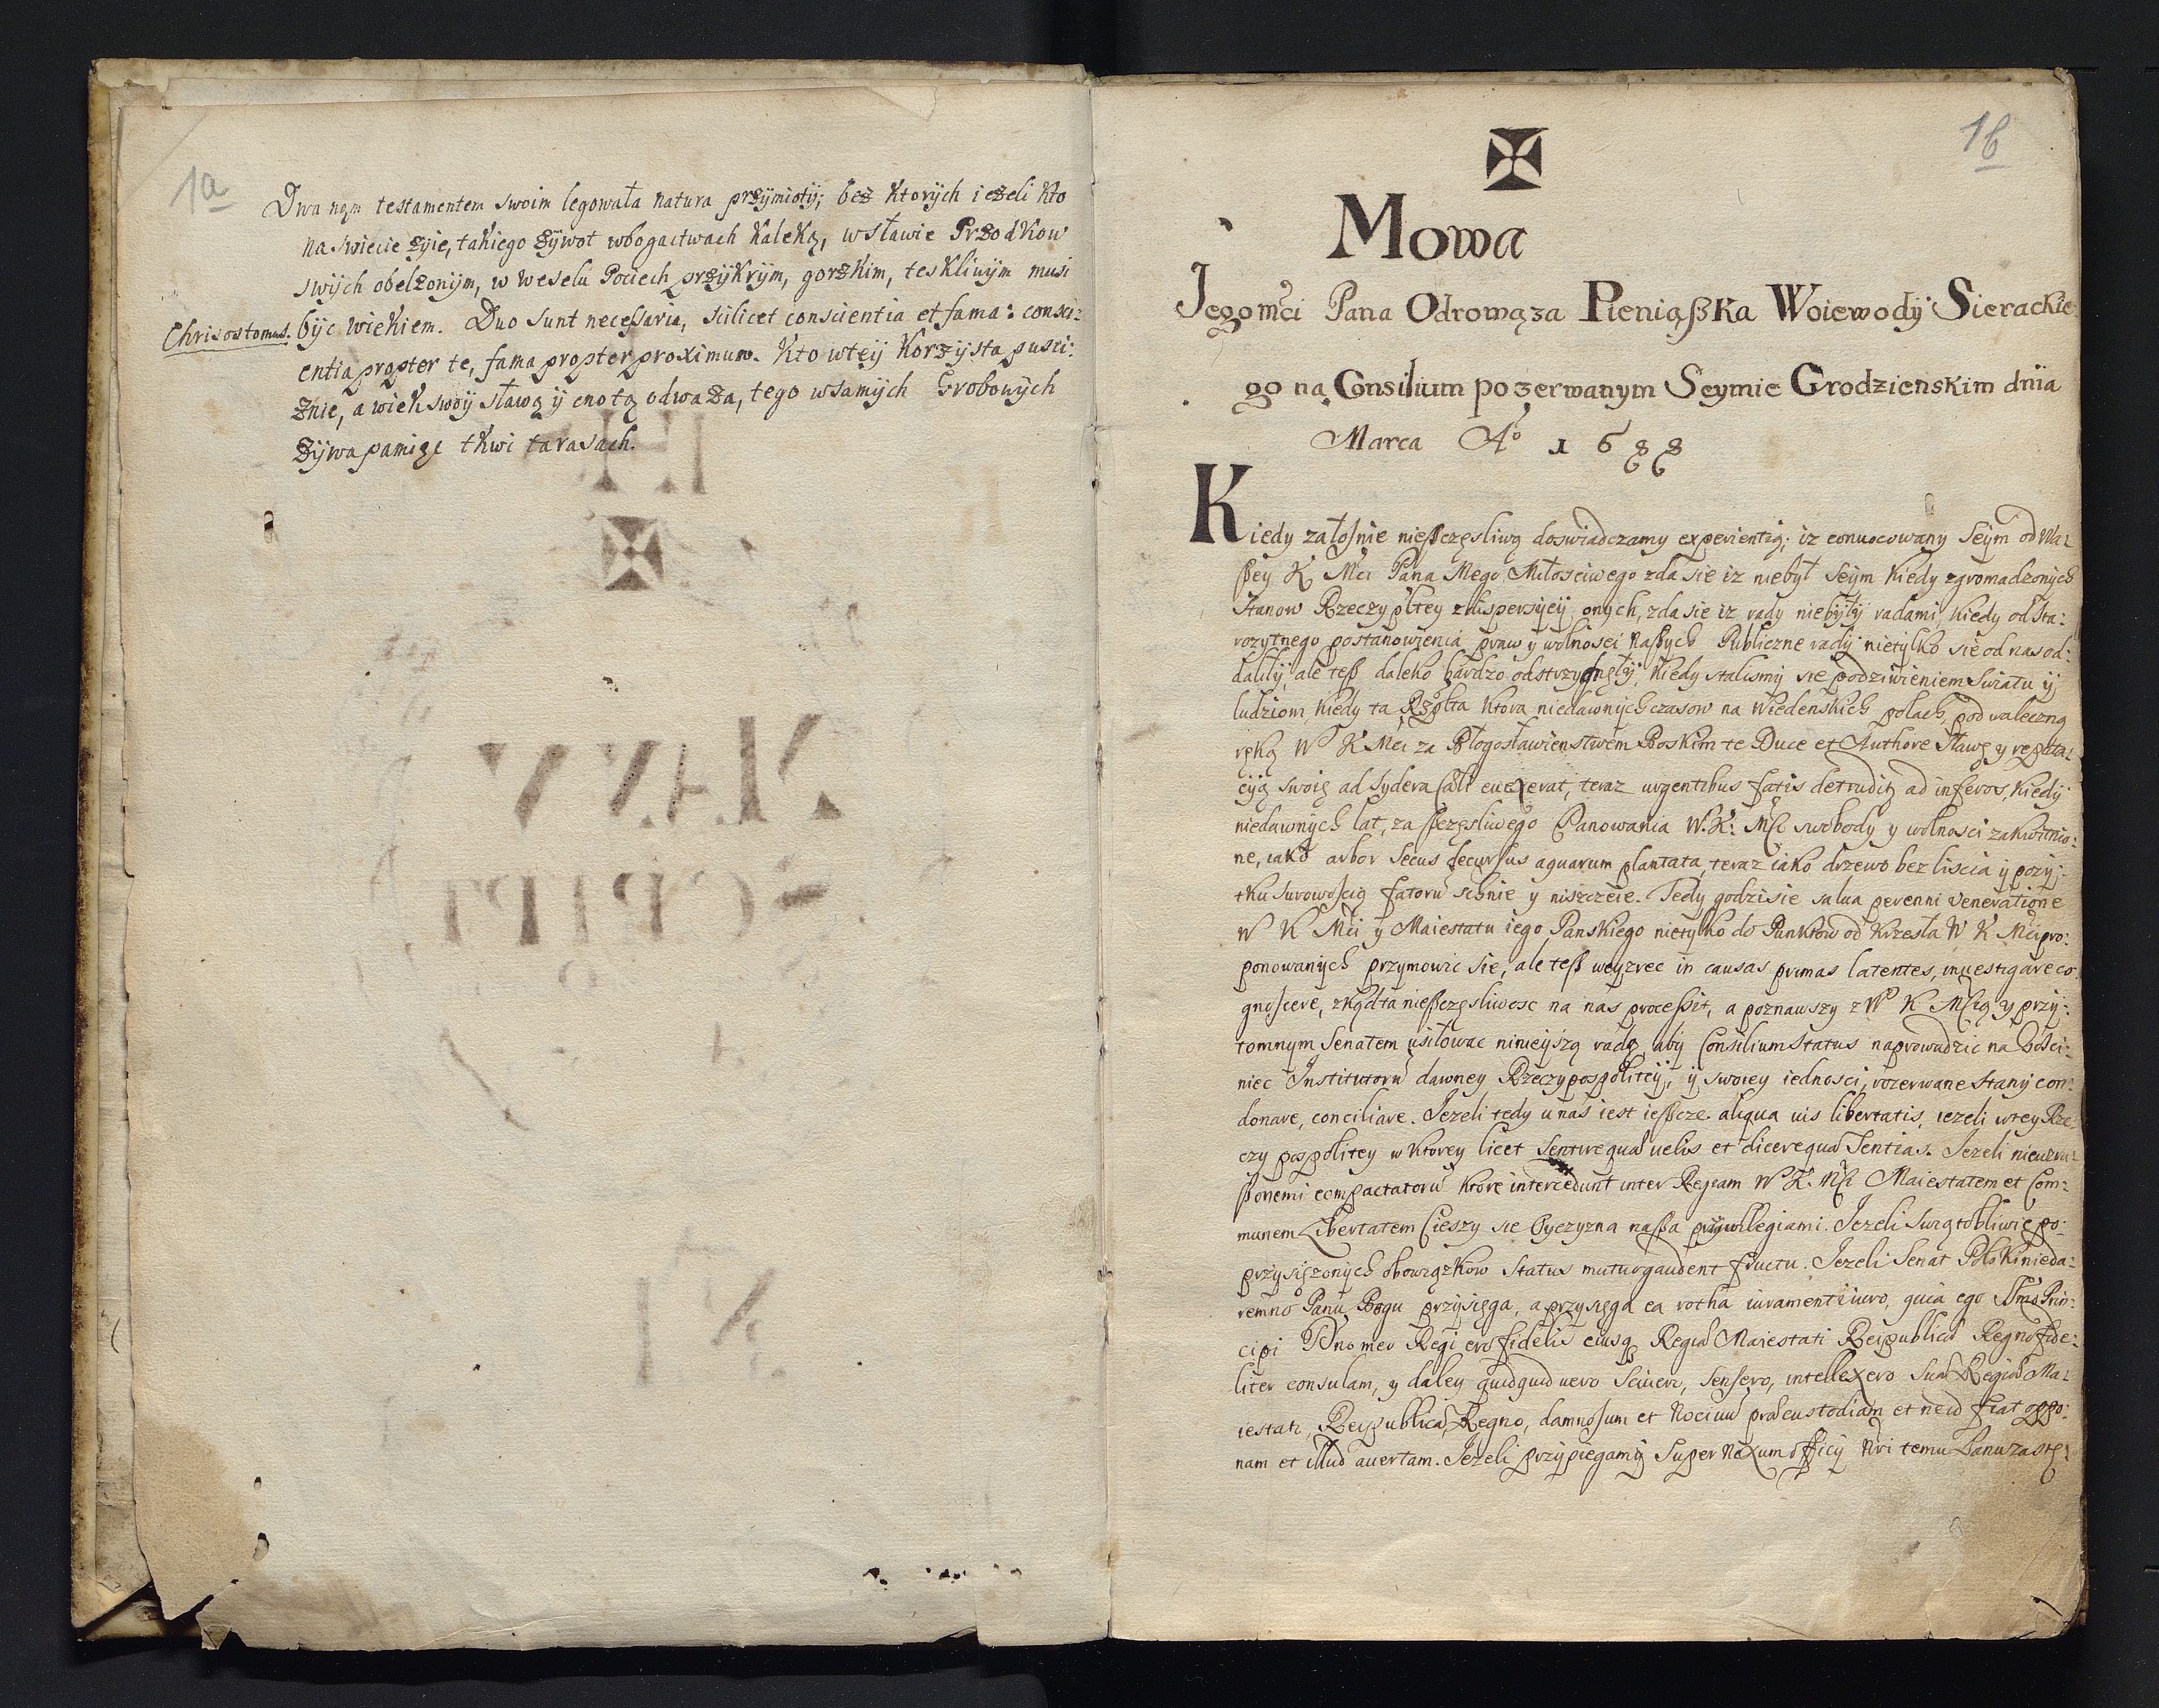 1a
Dwa nąm testamentem swoim legowała natura przÿmiotÿ; bez ktorÿch ieżeli kto
na swiecie żÿie, takiego żÿwot wbogactwach kaleką, wsławie Przodkow
swÿch obelżonÿm, w weselu Pociech przÿkrÿm, gorzkim, tesklinÿm musi
Chrisostomus. bÿc wiekiem. Duo sunt necessaria, scilicet conscientia et fama: consci:
entia propter te, fama propter proximum. Kto wteÿ korzÿsta pusci:
znie, a wiek swoÿ sławą ÿ cnotą odważa, tego wsamÿch Grobowÿch
żÿwa pamięc tkwi tarasach.
1b
Mowa
Jegomci Pana Odrowąza Pieniąßka Woiewodÿ Sierackie:
go na Consilium po zerwanym Seymie Grodzienskim dnia
Marca Aº 1688
Kiedy załosnie nießczęsliwą doswiadczamy experientią; iz conuocowany Seÿm od Wa:
ßey K Mci Pana Mego Miłosciwego zda sie iz niebył Seÿm kiedy zgromadzonÿch
Stanow Rzeczypltey z dispersÿeÿ onych, zda sie iz rady niebÿłÿ radami, kiedy od sta:
rozytnego postanowienia praw y wolnosci naßych Publiczne radÿ nietÿlko sie od nas od:
daliłÿ, ale teß daleko bardzo odstrzÿ kiedy stalismÿ sie podziwieniem Swiatu ÿ
ludziom, kiedy ta Rzplta ktora niedawnÿch czasow na Wiedenskich polach, pod waleczną
ręką W K Mci za Błogosławienstwem Boskim te Duce et Authore Sławę y reputa:
cÿą swoię ad Sydera euexerat, teraz urgentibus fatis detrudit ad inferos, kiedÿ
niedawnÿch lat, za ßczęsliwego Panowania W. K: Mci swobody y wolnosci zakwitnio:
ne, iako arbor secus decursus aquarum plantata, teraz iako drzewo bez liscia ÿ pozÿ:
tku surowoscią fatorũ schnie y niszczeie. Tedy godzi sie salua perenni veneratione
W K Mci y Maiestatu iego Panskiego nietylko do Punktow od krzesła W K Mci pro:
ponowanÿch przymowic sie, ale teß weyzrec in causas primas latentes, inuestigare co
gnoscere, zkąd ta nießczęsliwosc na nas processit, a poznawszy z W K Mcią y przy:
tomnym Senatem usiłowac ninieÿszą radą, abÿ Consilium status naprowadzic na Gosci:
niec Institutorũ dawney Rzeczypospoliteÿ, ÿ swoiey iednosci, rozerwane Stanÿ con:
donare, conciliare. Jezeli tedy u nas iest ießcze aliqua uis libertatis, iezeli wtey Rze:
czypospolitey w ktorey licet sentire quæ uelis et dicere quæ sentias. Jezeli nieuzru:
ßonemi compactatorũ ktore intercedunt inter Regiam W K. Mci Maiestatem et Com:
munem Libertatem Cieszy sie Oyczyzna naßa przÿwillegiami. Jezeli swiątobliwie po:
przysięzonÿch obowiązkow Status mutuo gaudent fructu. Jezeli Senat Polski nieda:
remno Panu Bogu przÿsięga, a przysięga ea rotha iuramenti iuro, quia ego Prin:
cipi Dno meo Regi ero fidelis eiusq Regiæ Maiestati Reipublicæ Regno fide:
liter consulam, y daley quidquid uero sciuero, sensero, intellexero Suæ Regiæ Ma:
iestati, Reipublicæ, Regno, damnosum et Nociuũ præcustodiam et ne id fiat oppo:
nam et illud auertam. Jezeli przÿpiegamÿ super Nexum officÿ Nri temu Panu zastę: